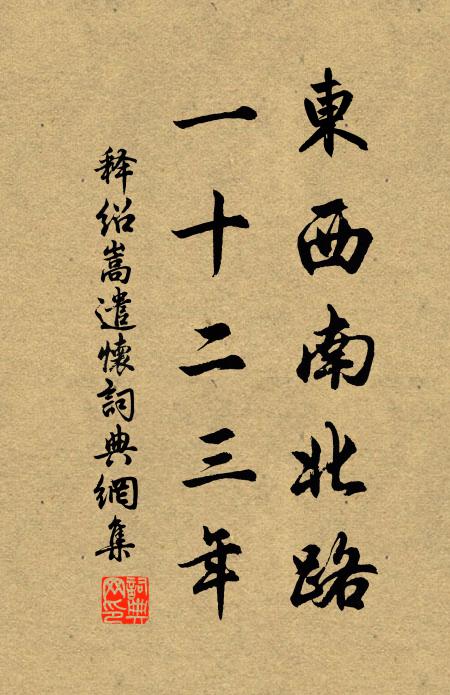 東西南北路
一十二三年
释绍嵩遣懷詞典網集
詞典网印